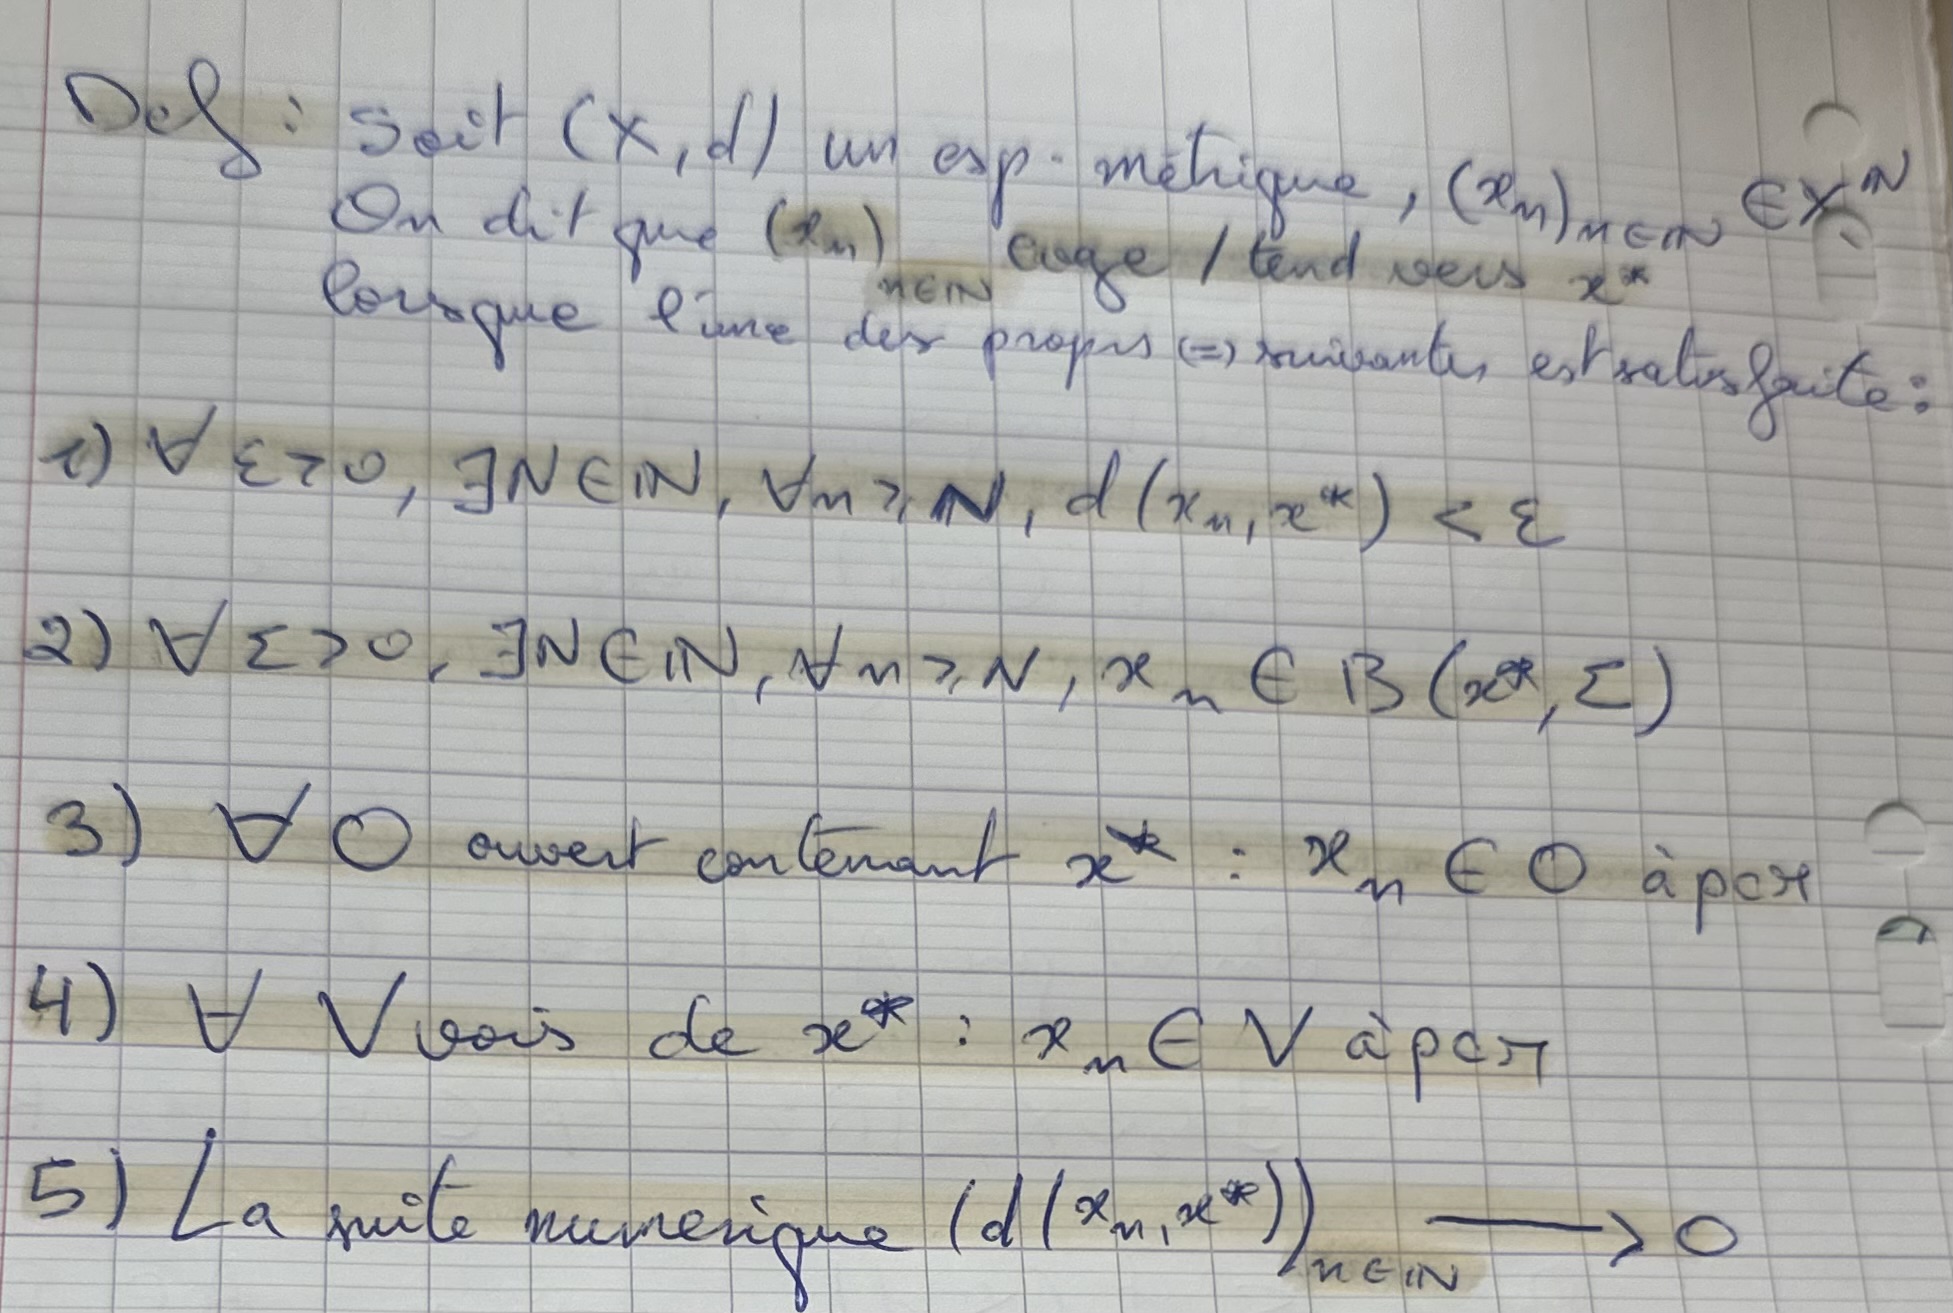 Def : Soit (X, d) un esp. métrique, (xₙ)ₙ∈ℕ ∈ X^ℕ
On dit que (xₙ)ₙ∈ℕ cvge / tend vers x*
lorsque l'une des propr's (⇔) suivantes est satisfaite :
1) ∀ ε > 0, ∃N ∈ ℕ, ∀n ⩾ N, d(xₙ, x*) < ε
2) ∀ Σ > 0, ∃N ∈ ℕ, ∀n ⩾ N, xₙ ∈ B(x*, Σ)
3) ∀ O ouvert contenant x* : xₙ ∈ O à pcr
4) ∀ V vois de x* : xₙ ∈ V à pcr
5) La suite numérique (d(xₙ, x*))ₙ∈ℕ ⟶ 0